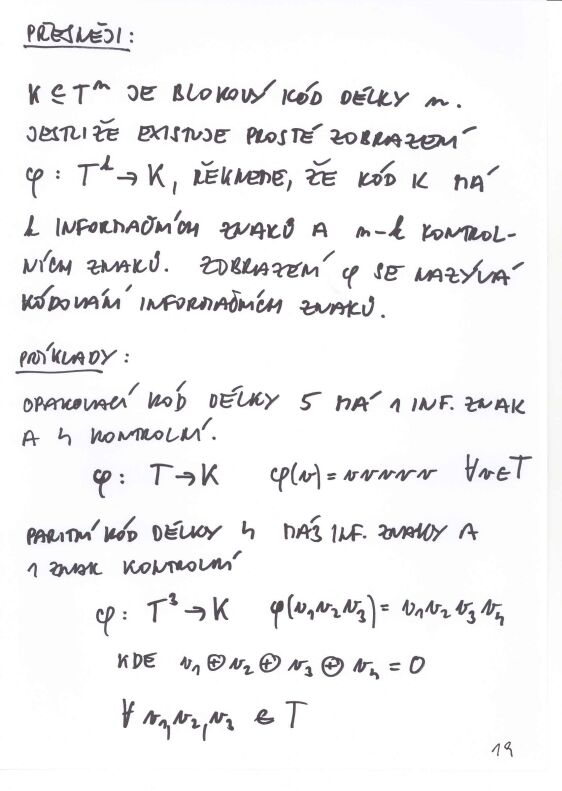 PŘESNĚJI:
K ⊆ Tⁿ JE BLOKOVÝ KÓD DÉLKY n.
JESTLIŽE EXISTUJE PROSTÉ ZOBRAZENÍ
φ : Tᵏ → K, ŘEKNEME, ŽE KÓD K MÁ
k INFORMAČNÍCH ZNAKŮ A n-k KONTROL-
NÍCH ZNAKŮ. ZOBRAZENÍ φ SE NAZÝVÁ
KÓDOVÁNÍ INFORMAČNÍCH ZNAKŮ.
PŘÍKLADY:
OPAKOVACÍ KÓD DÉLKY 5 MÁ 1 INF. ZNAK
A 4 KONTROLNÍ.
φ : T → K φ(v) = vvvvv ∀v∈T
PARITNÍ KÓD DÉLKY 4 MÁ 3 INF. ZNAKY A
1 ZNAK KONTROLNÍ
φ : T³ → K φ(v₁v₂v₃) = v₁v₂v₃v₄
KDE v₁ ⊕ v₂ ⊕ v₃ ⊕ v₄ = 0
∀ v₁,v₂,v₃ ∈ T
19